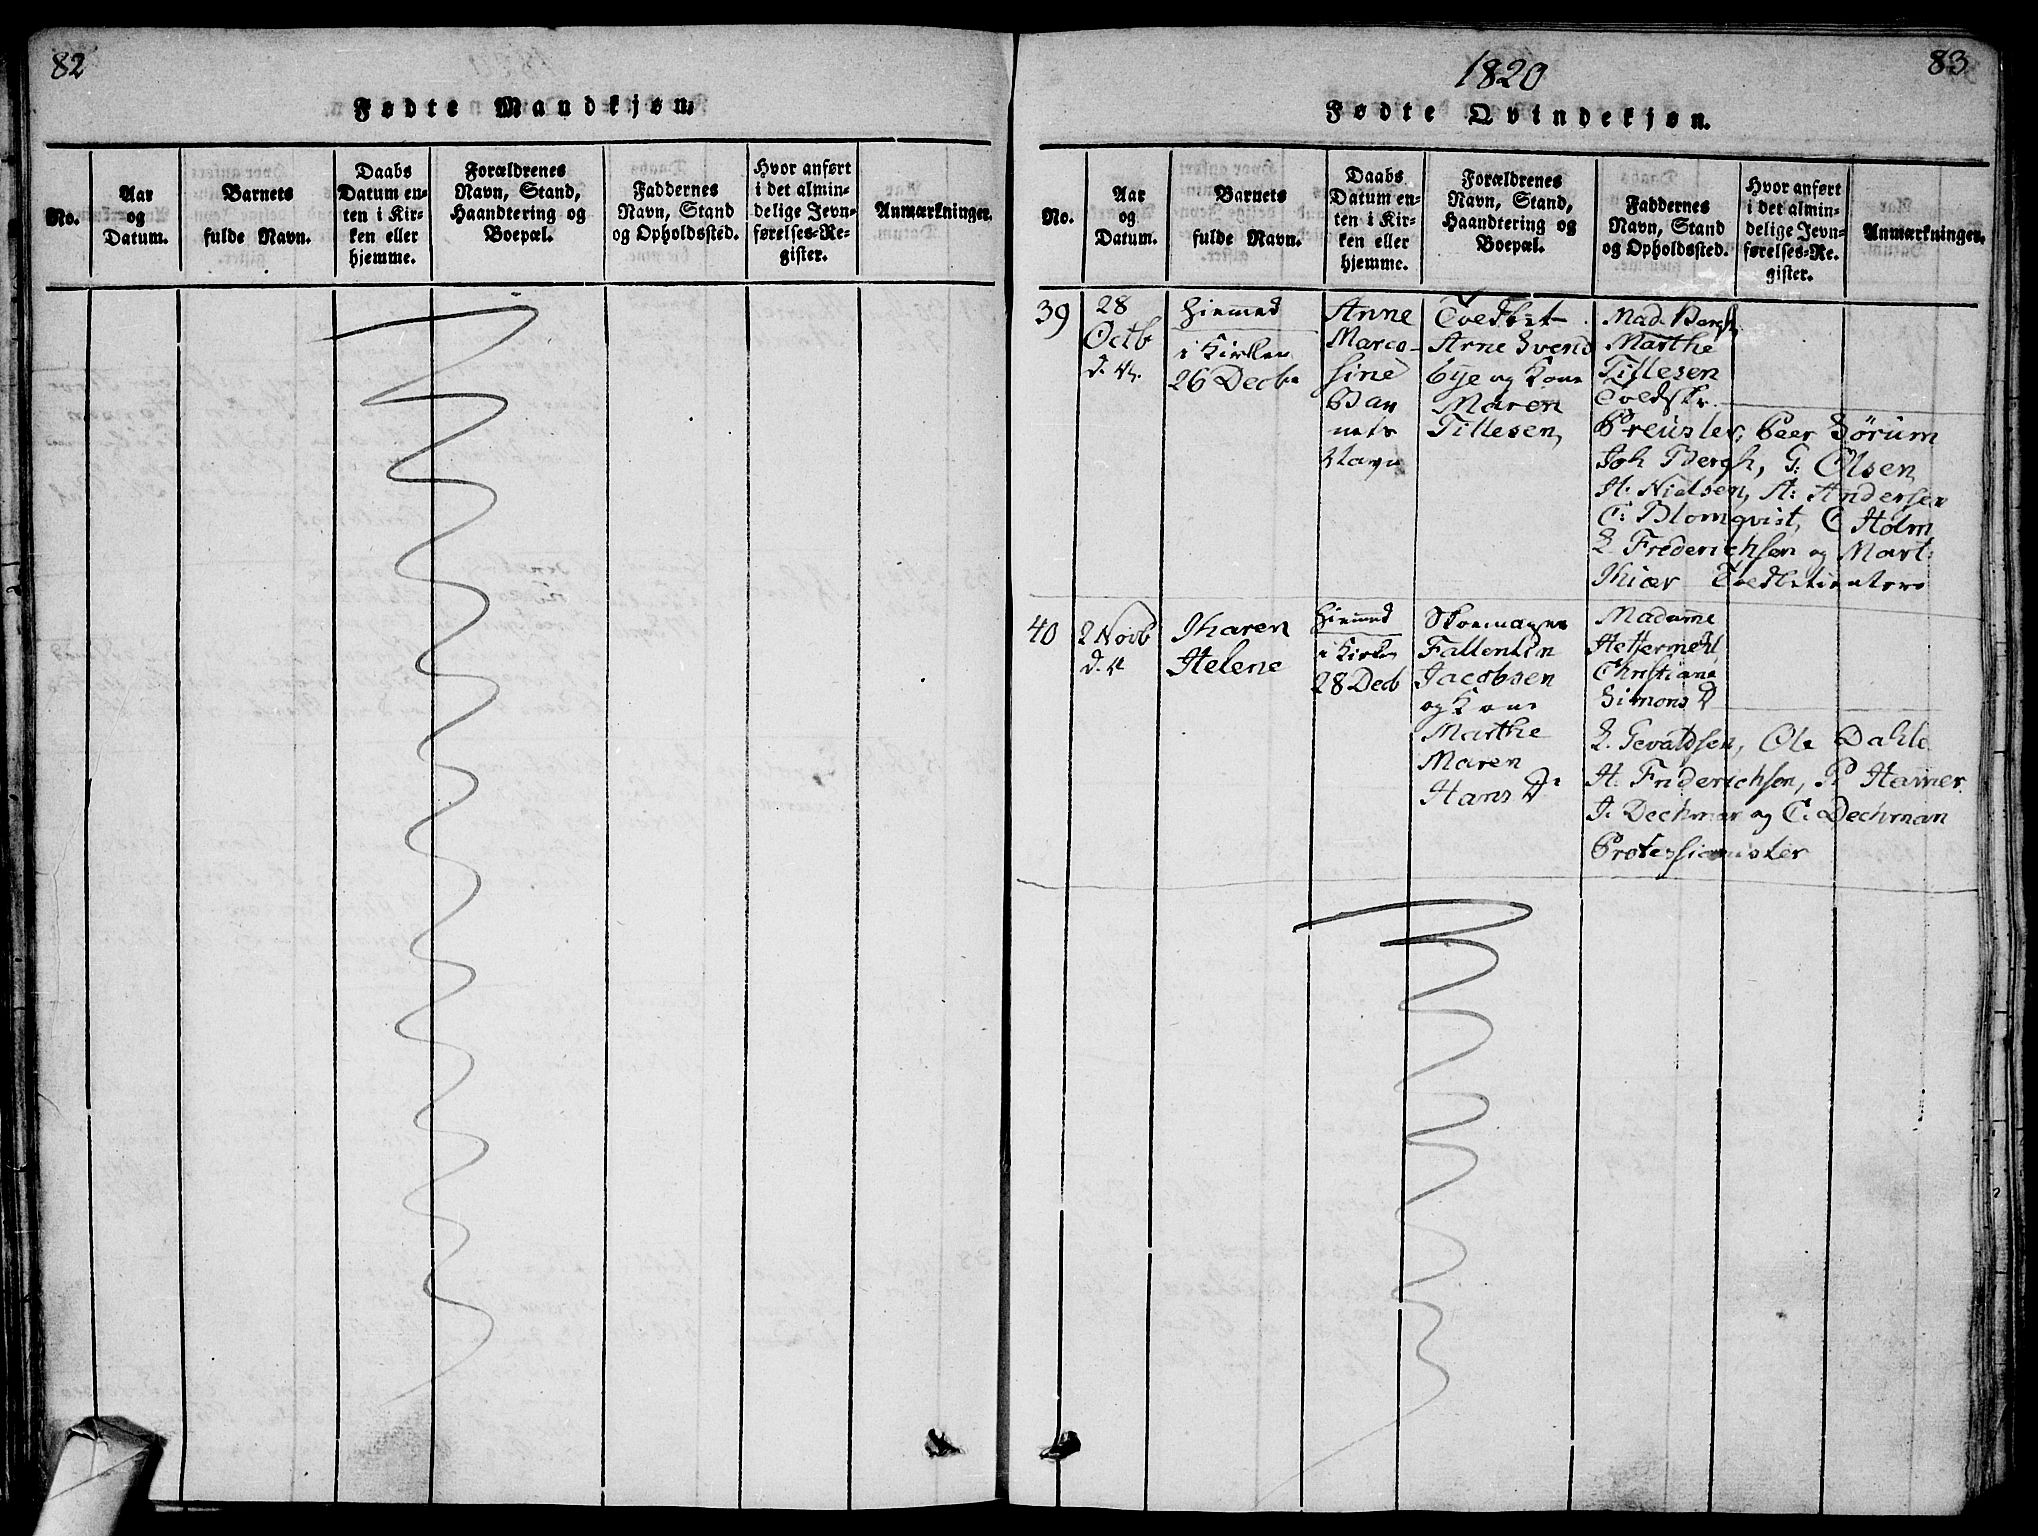 82
Fødte Mandkjøn.
No.
Aar
og
Datum.
Barnets
fulde Navn.
Daabs
Datum en-
ten i Kir-
ken eller
hjemme.
Forældrenes
Navn, Stand,
Haandtering og
Boepæl.
Faddernes
Navn, Stand
og Opholdssted.
Hvor anført
i det almin-
delige Jevn-
førelses-Re-
gister.
Anmærkninger.
1820
83
Fødte Qvindekjøn.
No.
Aar
og
Datum.
Barnets
fulde Navn.
Daabs
Datum en-
ten i Kir-
ken eller
hjemme.
Forældrenes
Navn, Stand,
Haandtering og
Boepæl.
Faddernes
Navn, Stand
og Opholdssted.
Hvor anført
i det almin-
delige Jevn-
førelses-Re-
gister.
Anmærkninger.
39
28
Octb
d. A.
Hiemed
i Kirken
26 Decbr
Anne
Marco-
sine
Bar
nets
Navn
Toedbet
Arne Svend
bye og Kone
Maren
Tillesen,
Mad. Bergh
Marthe
Tillesen
Toedskr.
Preusler, Peer Sørum
Joh Bergh, G: Olsen
H. Nielsen, A: Andersen
C: Blomqvist, C Holm
L Frederichsen og Mart:
Thiær Toedbetienter
40
2 Novb
d. A
Tharen
Helene
Hiemed
i Kirken
28 Decb
Skoemager
Fallentin
Jacobsen
og Kone
Marthe
Maren
Hans D
Madame
Hetjermehl
Christiane
Simons D
L. Gevaldsen, Ole Dahle
H. Friderichsen, P. Hamer
J. Dechman og C. Dechman
Professionister